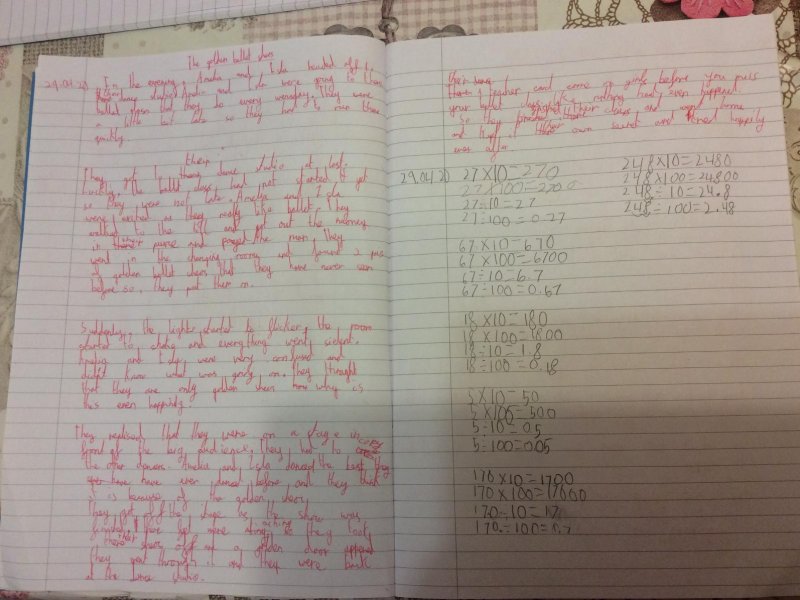 The golden ballet shoes
29.04.20 In the evening, Amelia and Isla headed off to
dance studio. Amelia and Isla were going to their
ballet lesson as they do every wensday. They were
a little bit late so they had to run there
quickly.
They got to there their dance studio at last.
luckily, the ballet class had not started yet
so they were not late. Amelia and Isla
were excited as they really like ballet. They
walked to the and got out the money
in their purse and payed the man. They
went in the changing rooms and found 2 pairs
of golden ballet shoes that they have never seen
before so, they put them on.
Suddenly, the lights started to flicker, the room
started to shake and everything went silent.
Amelia and Isla were very confused and
didn't know what was going on. They thought
that they are only golden shoes how why is
this even happening.
They realised that they were on a stage in
front of the big audience. They had to copy
the other dancers. Amelia and Isla danced the best they
have ever danced before and they think
it is because of the golden shoes.
They got off the stage as the show was
finished. There feet were aching so they took
their shoes off and a golden door appeared
They went through it and they were back
at the dance studio.
teacher said come on girls before you miss
your ballet class like nothing had even happened.
so they their class and went home
and kept it their own secret and lived happily
ever after.
29.04.20 27×10=270
27×100=2700
27÷10=27
27÷100=0.27
67×10=670
67×100=6700
67÷10=6.7
67÷100=0.67
18×10=180
18×100=1800
18÷10=1.8
18÷100=0.18
5×10=50
5×100=500
5÷10=0.5
5÷100=0.05
170×10=1700
170×100=17000
170÷10=17
170÷100=1.7
248×10=2480
248×100=24800
248÷10=24.8
248÷100=2.48